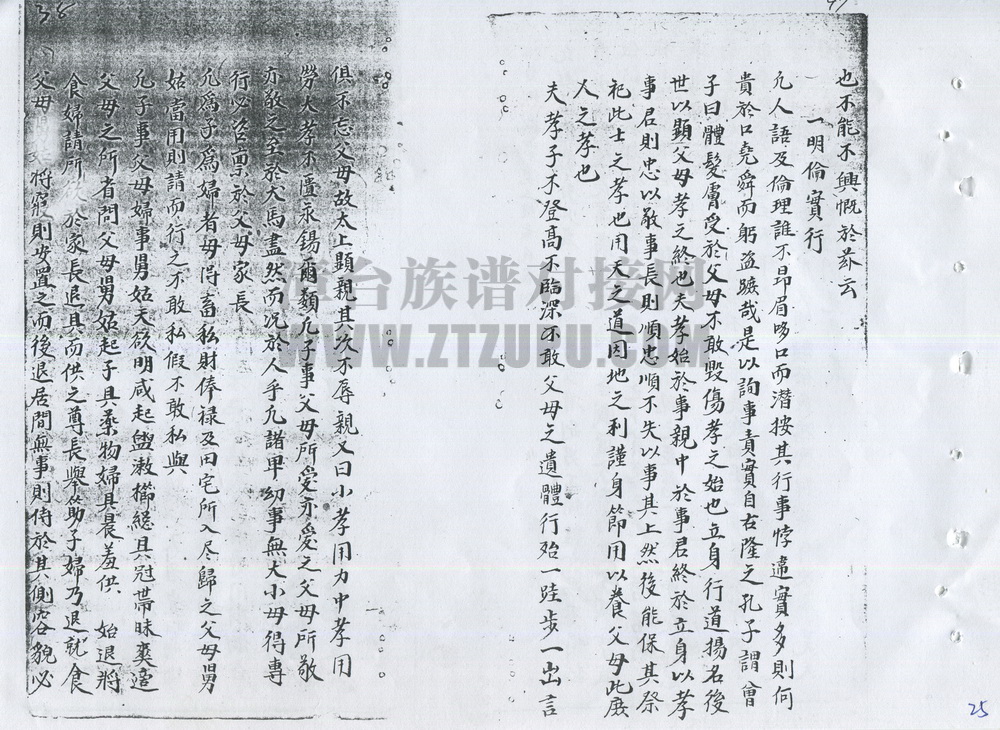 也不能不興慨於茲云
一明倫實行
凢人語及倫理誰不昻眉哆口而潜按其行事悖違實多則何
貴於口堯舜而躬盗蹠哉是以詢事責實自古隆之孔子謂曾
子曰體髮膚受於父母不敢毀傷孝之始也立身行道揚名後
世以顯父母孝之終也夫孝始於事親中於事君終於立身以孝
事君則忠以敬事長則順忠順不失以事其上然後能保其祭
祀此士之孝也用天之道因地之利謹身節用以養父母此庶
人之孝也
夫孝子不登高不臨深不敢父母之遺體行殆一跬步一出言
俱不忘父母故太上顯親其次不辱親又曰小孝用力中孝用
勞大孝不匱永錫爾類凢子事父母所愛亦愛之父母所敬
亦敬之至於犬馬盡然而况於人乎凢諸卑幼事無大小毋得專
行必咨稟於父母家長
凢為子為婦者毋得畜私財俸禄及田宅所入尽歸之父母舅
姑當用則請而行之不敢私假不敢私與
凢子事父母婦事舅姑天欲明咸起盥漱櫛縰具冠帶昧爽適
父母之所省問父母舅姑起子具藥物婦具晨羞供 始退將
食婦請所 於家長退具而供之尊長舉筯子婦乃退就食
父母 將寢則安置之而後退居間無事則侍於其側容貌必
38
25
漳台族谱对接网
WWW.ZTZUPU.COM